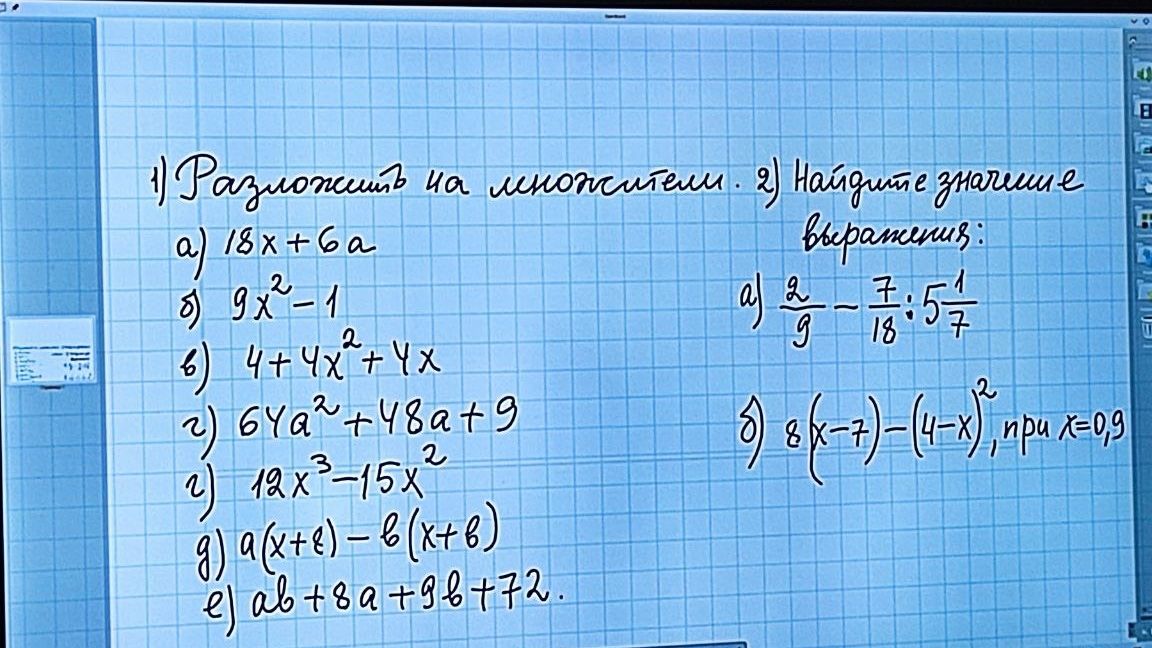 1) Разложить на множители.
а) 18x + 6a
б) 9x² − 1
в) 4 + 4x² + 4x
г) 64a² + 48a + 9
г) 12x³ − 15x²
д) a(x+в) − в(x+в)
е) aв + 8a + 9в + 72.
2) Найдите значение
выражения:
а) 2/9 − 7/18 : 5 1/7
б) 8(x−7) − (4−x)², при x=0,9